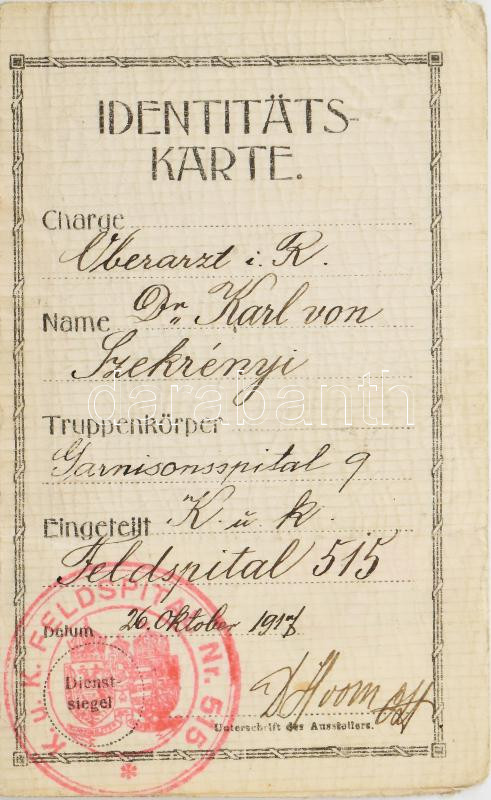 IDENTITÄTS-
KARTE.
Charge
Oberarzt i. R.
Name Dr. Karl von
Szekrényi
Truppenkörper
Garnisonsspital 9
Eingeteilt K. u. k.
Feldspital 515
Datum 26. Oktober 1917
K. u. K. FELDSPITAL Nr. 5/5
Dienst-
siegel
Unterschrift des Ausstellers.
darabanth